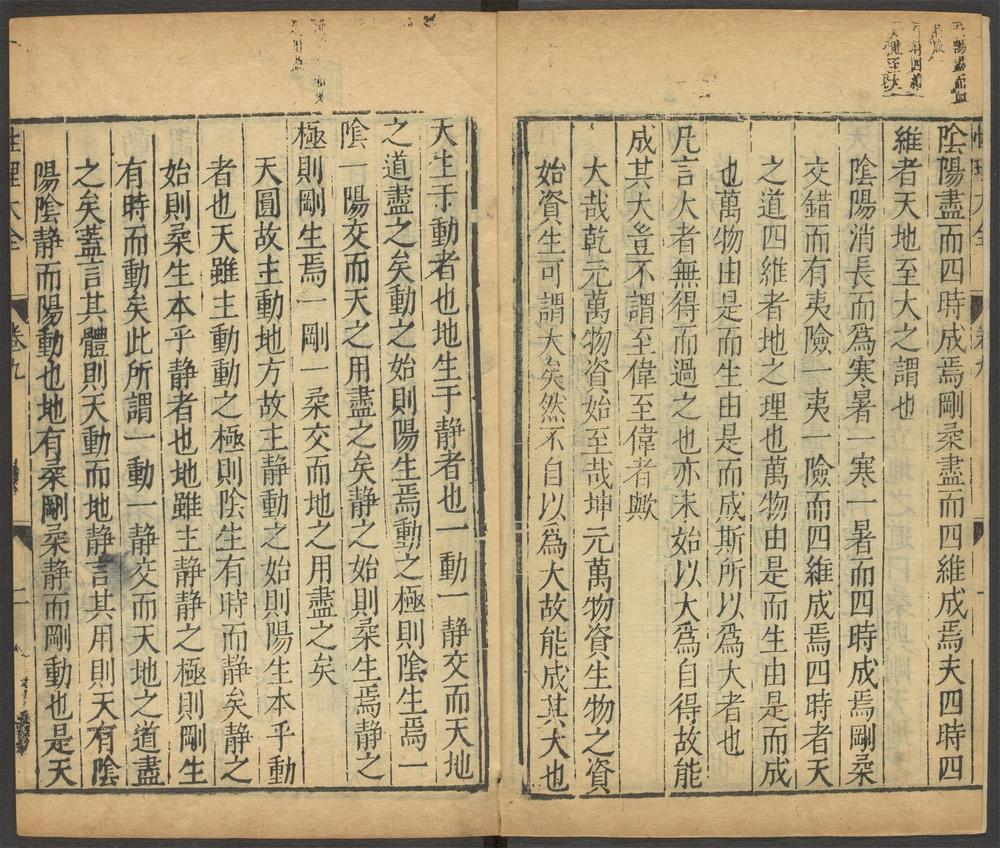 陰陽盡而四時成焉剛柔盡而四維成焉夫四時四
維者天地至大之謂也
陰陽消長而爲寒暑一寒一暑而四時成焉剛柔
交錯而有夷險一夷一險而四維成焉四時者天
之道四維者地之理也萬物由是而生由是而成
也萬物由是而生由是而成斯所以爲大者也
凡言大者無得而過之也亦未始以大爲自得故能
成其大豈不謂至偉至偉者歟
大哉乾元萬物資始至哉坤元萬物資生物之資
始資生可謂大矣然不自以爲大故能成其大也
天生于動者也地生于静者也一動一静交而天地
之道盡之矣動之始則陽生焉動之極則陰生焉一
陰一陽交而天之用盡之矣静之始則柔生焉静之
極則剛生焉一剛一柔交而地之用盡之矣
天圓故主動地方故主静動之始則陽生本乎動
者也天雖主動動之極則陰生有時而静矣静之
始則柔生本乎静者也地雖主静静之極則剛生
有時而動矣此所謂一動一静交而天地之道盡
之矣蓋言其體則天動而地静言其用則天有陰
陽陰静而陽動也地有柔剛柔静而剛動也是天
性理大全
卷九
二